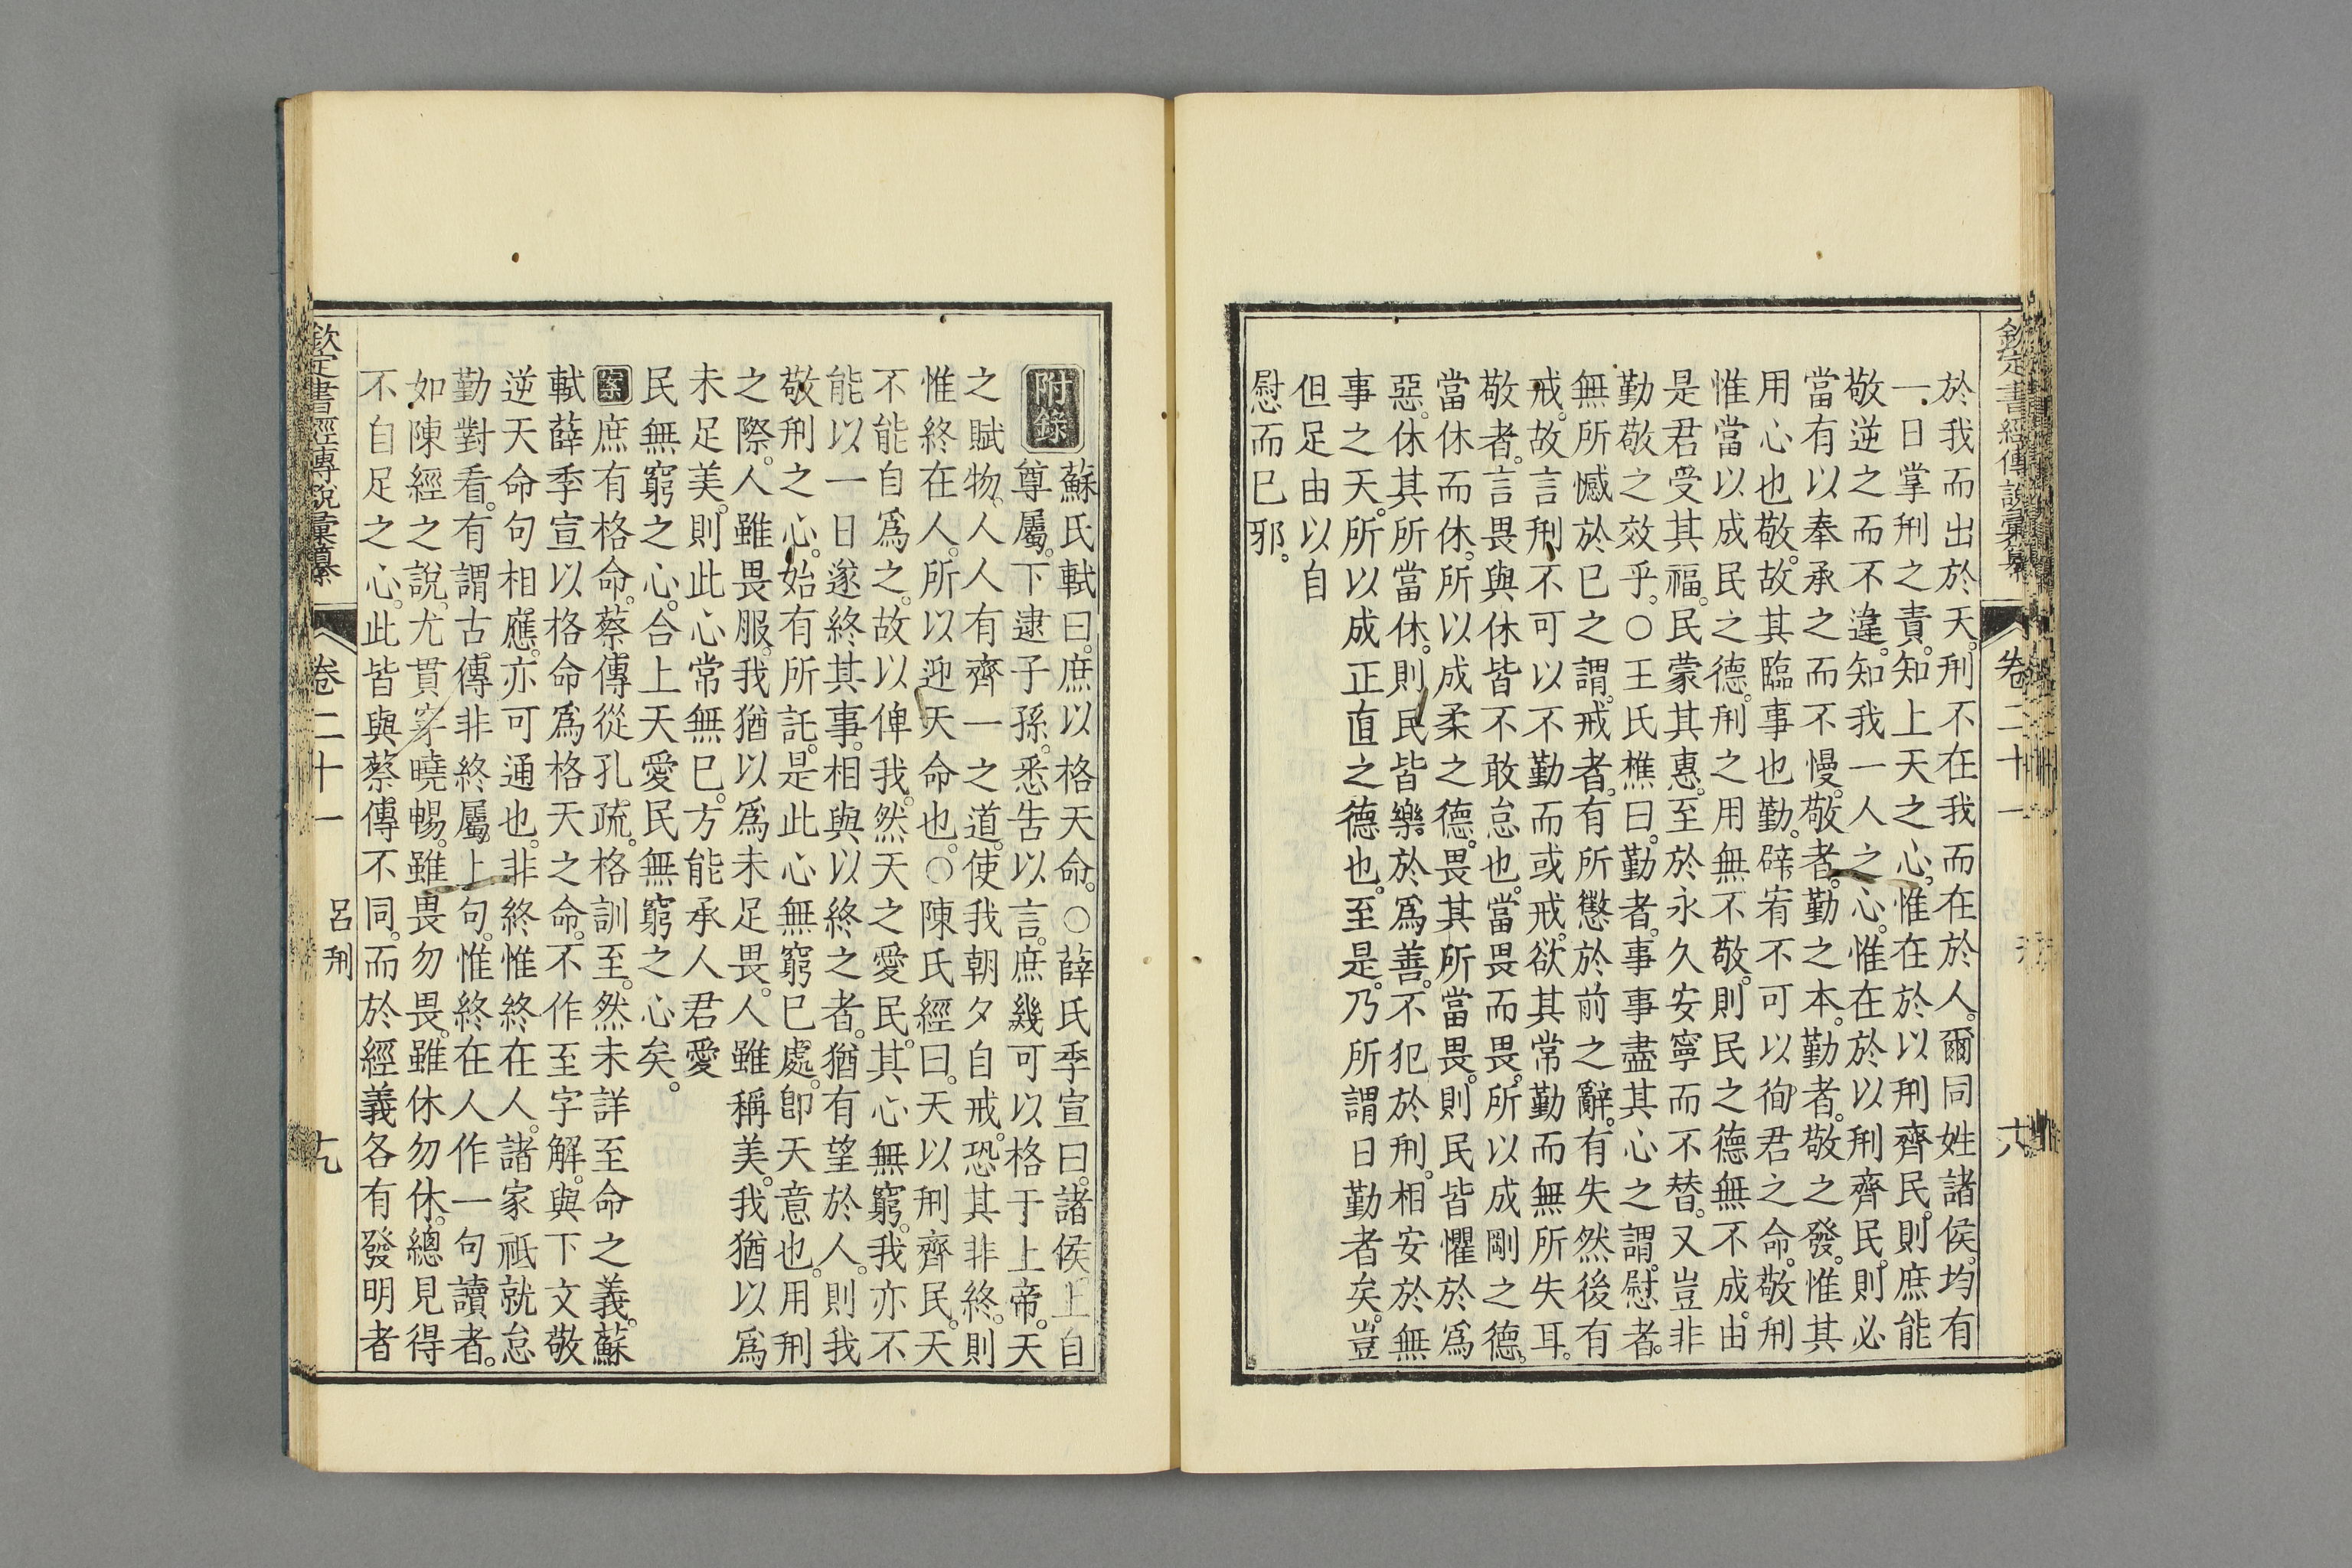 欽定書經傳說彙纂 卷二十一 六
於我而出於天。刑不在我而在於人。爾同姓諸侯。均有
一日掌刑之責。知上天之心。惟在於以刑齊民。則庶能
敬逆之而不違。知我一人之心。惟在於以刑齊民。則必
當有以奉承之而不慢。敬者。勤之本。勤者。敬之發。惟其
用心也敬。故其臨事也勤。辟宥不可以徇君之命。敬刑
惟當以成民之德。刑之用無不敬。則民之德無不成。由
是君受其福。民蒙其惠。至於永久安寧而不替。又豈非
勤敬之效乎。○王氏樵曰。勤者。事事盡其心之謂。慰者。
無所憾於已之謂。戒者。有所懲於前之辭。有失然後有
戒。故言刑不可以不勤而或戒。欲其常勤而無所失耳。
敬者。言畏與休皆不敢怠也。當畏而畏。所以成剛之德。
當休而休。所以成柔之德。畏其所當畏。則民皆懼於爲
惡。休其所當休。則民皆樂於爲善。不犯於刑。相安於無
事之天。所以成正直之德也。至是。乃所謂日勤者矣。豈
但足由以自
慰而已邪。
附錄
蘇氏軾曰。庶以格天命。○薛氏季宣曰。諸侯上自
尊屬。下逮子孫。悉告以言。庶幾可以格于上帝。天
之賦物。人人有齊一之道。使我朝夕自戒。恐其非終。則
惟終在人。所以迎天命也。○陳氏經曰。天以刑齊民。天
不能自爲之。故以俾我。然天之愛民。其心無窮。我亦不
能以一日遂終其事。相與以終之者。猶有望於人。則我
敬刑之心。始有所託。是此心無窮已處。卽天意也。用刑
之際。人雖畏服。我猶以爲未足畏。人雖稱美。我猶以爲
未足美。則此心常無已。方能承人君愛
民無窮之心。合上天愛民無窮之心矣。
案庶有格命。蔡傳從孔疏。格訓至。然未詳至命之義。蘇
軾薛季宣以格命爲格天之命。不作至字解。與下文敬
逆天命句相應。亦可通也。非終惟終在人。諸家祗就怠
勤對看。有謂古傳非終屬上句。惟終在人作一句讀者。
如陳經之說。尤貫穿曉暢。雖畏勿畏。雖休勿休。總見得
不自足之心。此皆與蔡傳不同。而於經義各有發明者
欽定書經傳說彙纂 卷二十一 呂刑 九